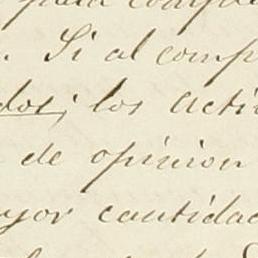 para comp
. Si al comp
dos; los acti
de opinion
yor cantidad